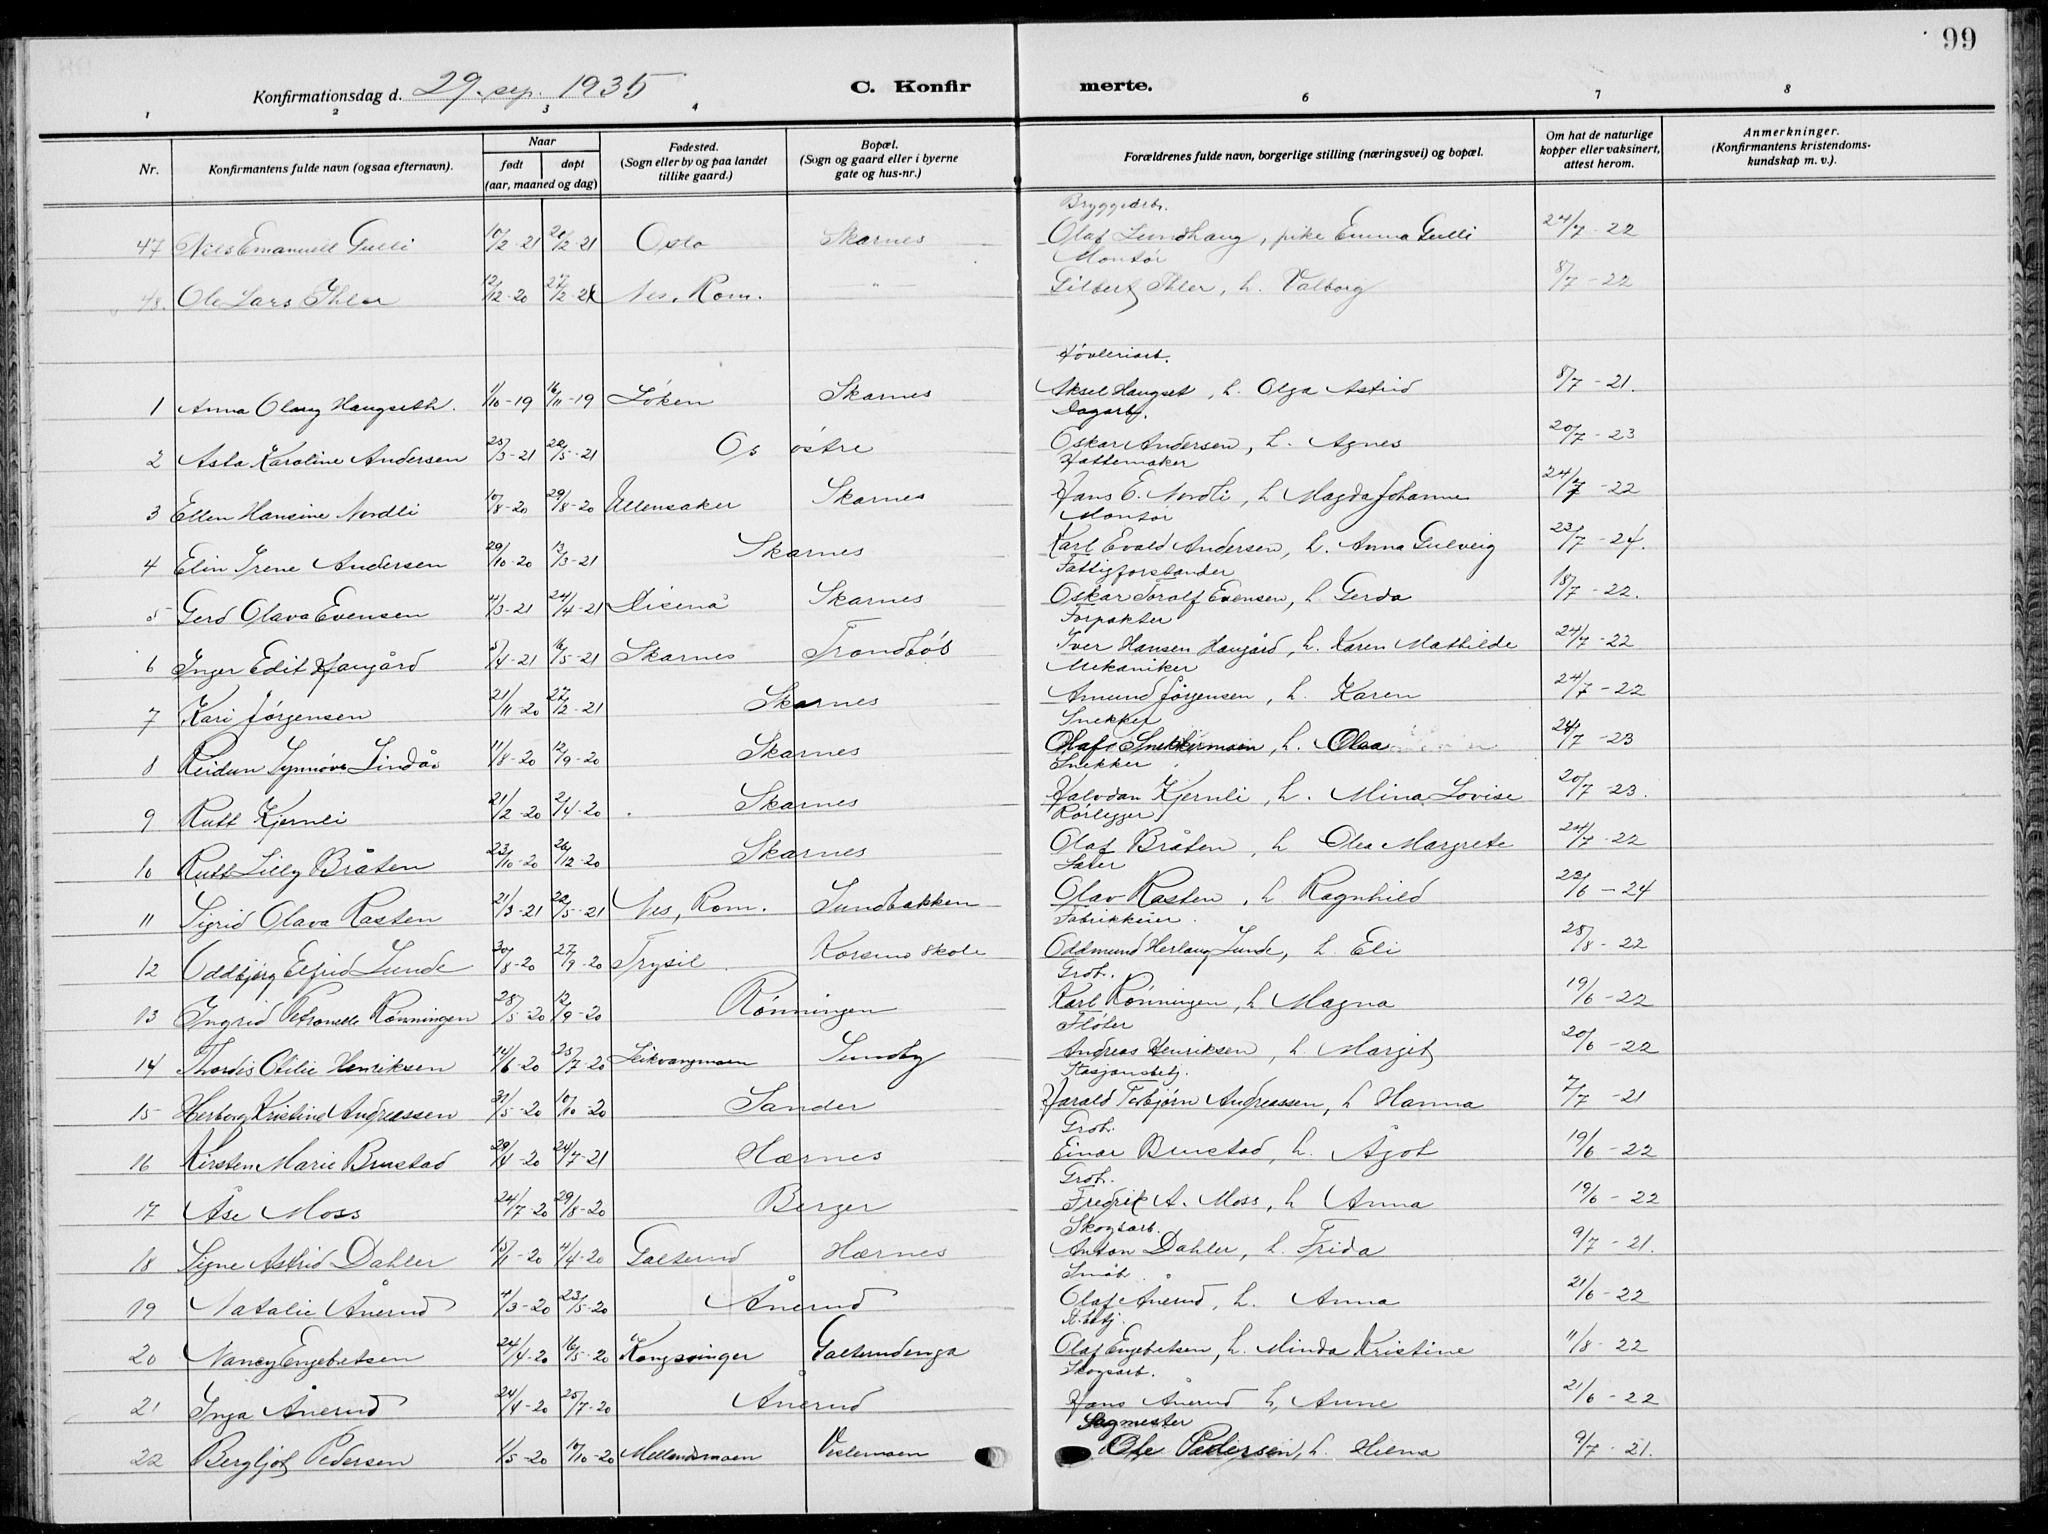 99
Konfirmationsdag d. 29. sep. 1935 C. Konfirmerte.
1 2 3 4 6 7 8
Nr. Konfirmantens fulde navn (ogsaa efternavn). Naar født døpt (aar, maaned og dag) Fødested. (Sogn eller by og paa landet tillike gaard.) Bopæl. (Sogn og gaard eller i byerne gate og hus-nr.) Forældrenes fulde navn, borgerlige stilling (næringsvei) og bopæl. Om hat de naturlige kopper eller vaksinert, attest herom. Anmerkninger. (Konfirmantens kristendomskundskap m. v.).
Bryggearb.
47 Nils Emanuell Gulli 10/2-21 20/2-21 Oslo Skarnes Olaf Lundhaug, pike Emma Gulli 24/7-22
Montør
48. Ole Lars Ihler 12/12-20 27/2-21 Nes, Rom. -"- Gilbert Ihler, h. Valborg 8/7-22
Høvleriarb.
1 Anna Olaug Haugseth. 1/10-19 16/11-19 Løken Skarnes Aksel Haugset, h. Olga Astrid 8/7-21.
Dagarb.
2 Asta Karoline Andersen 25/3-21 22/5-21 Os østre Oskar Andersen, h. Agnes 20/7-23
Hattemaker
3 Ellen Hansine Nordli 10/8-20 29/8-20 Ullensaker Skarnes Hans E. Nordli, h Magda Johanne 24/7-22
Montør
4 Elin Irene Andersen 29/10-20 13/3-21 Skarnes Karl Evald Andersen, h. Anna Gulveig 23/7-24.
Fattigforstander
5 Gerd Olava Evensen 4/3-21 24/4-21 Disenå Skarnes Oskar Toralf Evensen, h. Gerda 18/7-22.
Forpakter
6 Inger Edit Haugård 5/4-21 16/5-21 Skarnes Trondbøl Iver Hansen Haugård, h. Karen Mathilde 24/7-22
Mekaniker
7 Kari Jørgensen 21/11-20 27/2-21 Skarnes Amund Jørgensen, h. Karen 24/7-22
Snekker
8 Reidun Synnøve Lindås 11/8-20 12/9-20 Skarnes Olaf Snekkermoen, h. Olea 24/7-23
Snekker
9 Rutt Kjernli 21/2-20 2/4-20 Skarnes Halvdan Kjernli, h. Mina Lovise 20/7-23.
Rørlegger
10 Rutt Lilly Bråten 23/10-20 26/12-20 Skarnes Olaf Bråten, h Olea Margrete 24/7-22
11 Sigrid Olava Rasten 21/3-21 22/5-21 Nes, Rom. Sundbakken Olav Rasten, h Ragnhild 22/6-24
Fabrikkeier.
12 Oddbjørg Elfrid Lunde 30/8-20 27/9-20 Trysil Korsmo skole Oddmund Herlaug Lunde, h. Eli 28/8-22
Grob.
13 Ingrid Petronelle Rønningen 28/5-20 12/9-20 Rønningen Karl Rønningen, h Magna 19/6-22
Fløter
14 Thordis Otilie Henriksen 14/6-20 25/7-20 Leikvangmoen Sundby Andreas Henriksen, h. Margit 20/6-22
Stasjonsbetj.
15 Herborg Kristine Andreassen 31/5-20 10/10-20 Sander Harald Torbjørn Andreassen, h Hanna 7/7-21
Grob.
16 Kirsten Marie Brustad 29/4-20 24/7-21 Hærnes Einar Brustad, h. Ågot 19/6-22
Grob.
17 Åse Moss 24/7-20 29/8-20 Berger Fredrik A. Moss, h Anna 19/6-22
Skogsarb.
18 Signe Astrid Dahler 15/1-20 4/4-20 Galterud Hærnes Anton Dahler, h. Frida 9/7-21.
Småb.
19 Natalie Ånerud 4/3-20 23/5-20 Ånerud Olaf Ånerud, h. Anna 21/6-22
20 Nancy Engebretsen 24/4-20 16/5-20 Kongsvinger Galterudenga Olaf Engebretsen, h. Minda Kristine 11/8-22
Skogsarb.
21 Inga Ånerud 24/4-20 25/7-20 Ånerud Hans Ånerud h, Anne 21/6-22
Sagmester
22 Bergljot Pedersen 1/5-20 10/10-20 Mellommoen Veslemoen Ole Pedersen, h. Hilma 9/7-21.